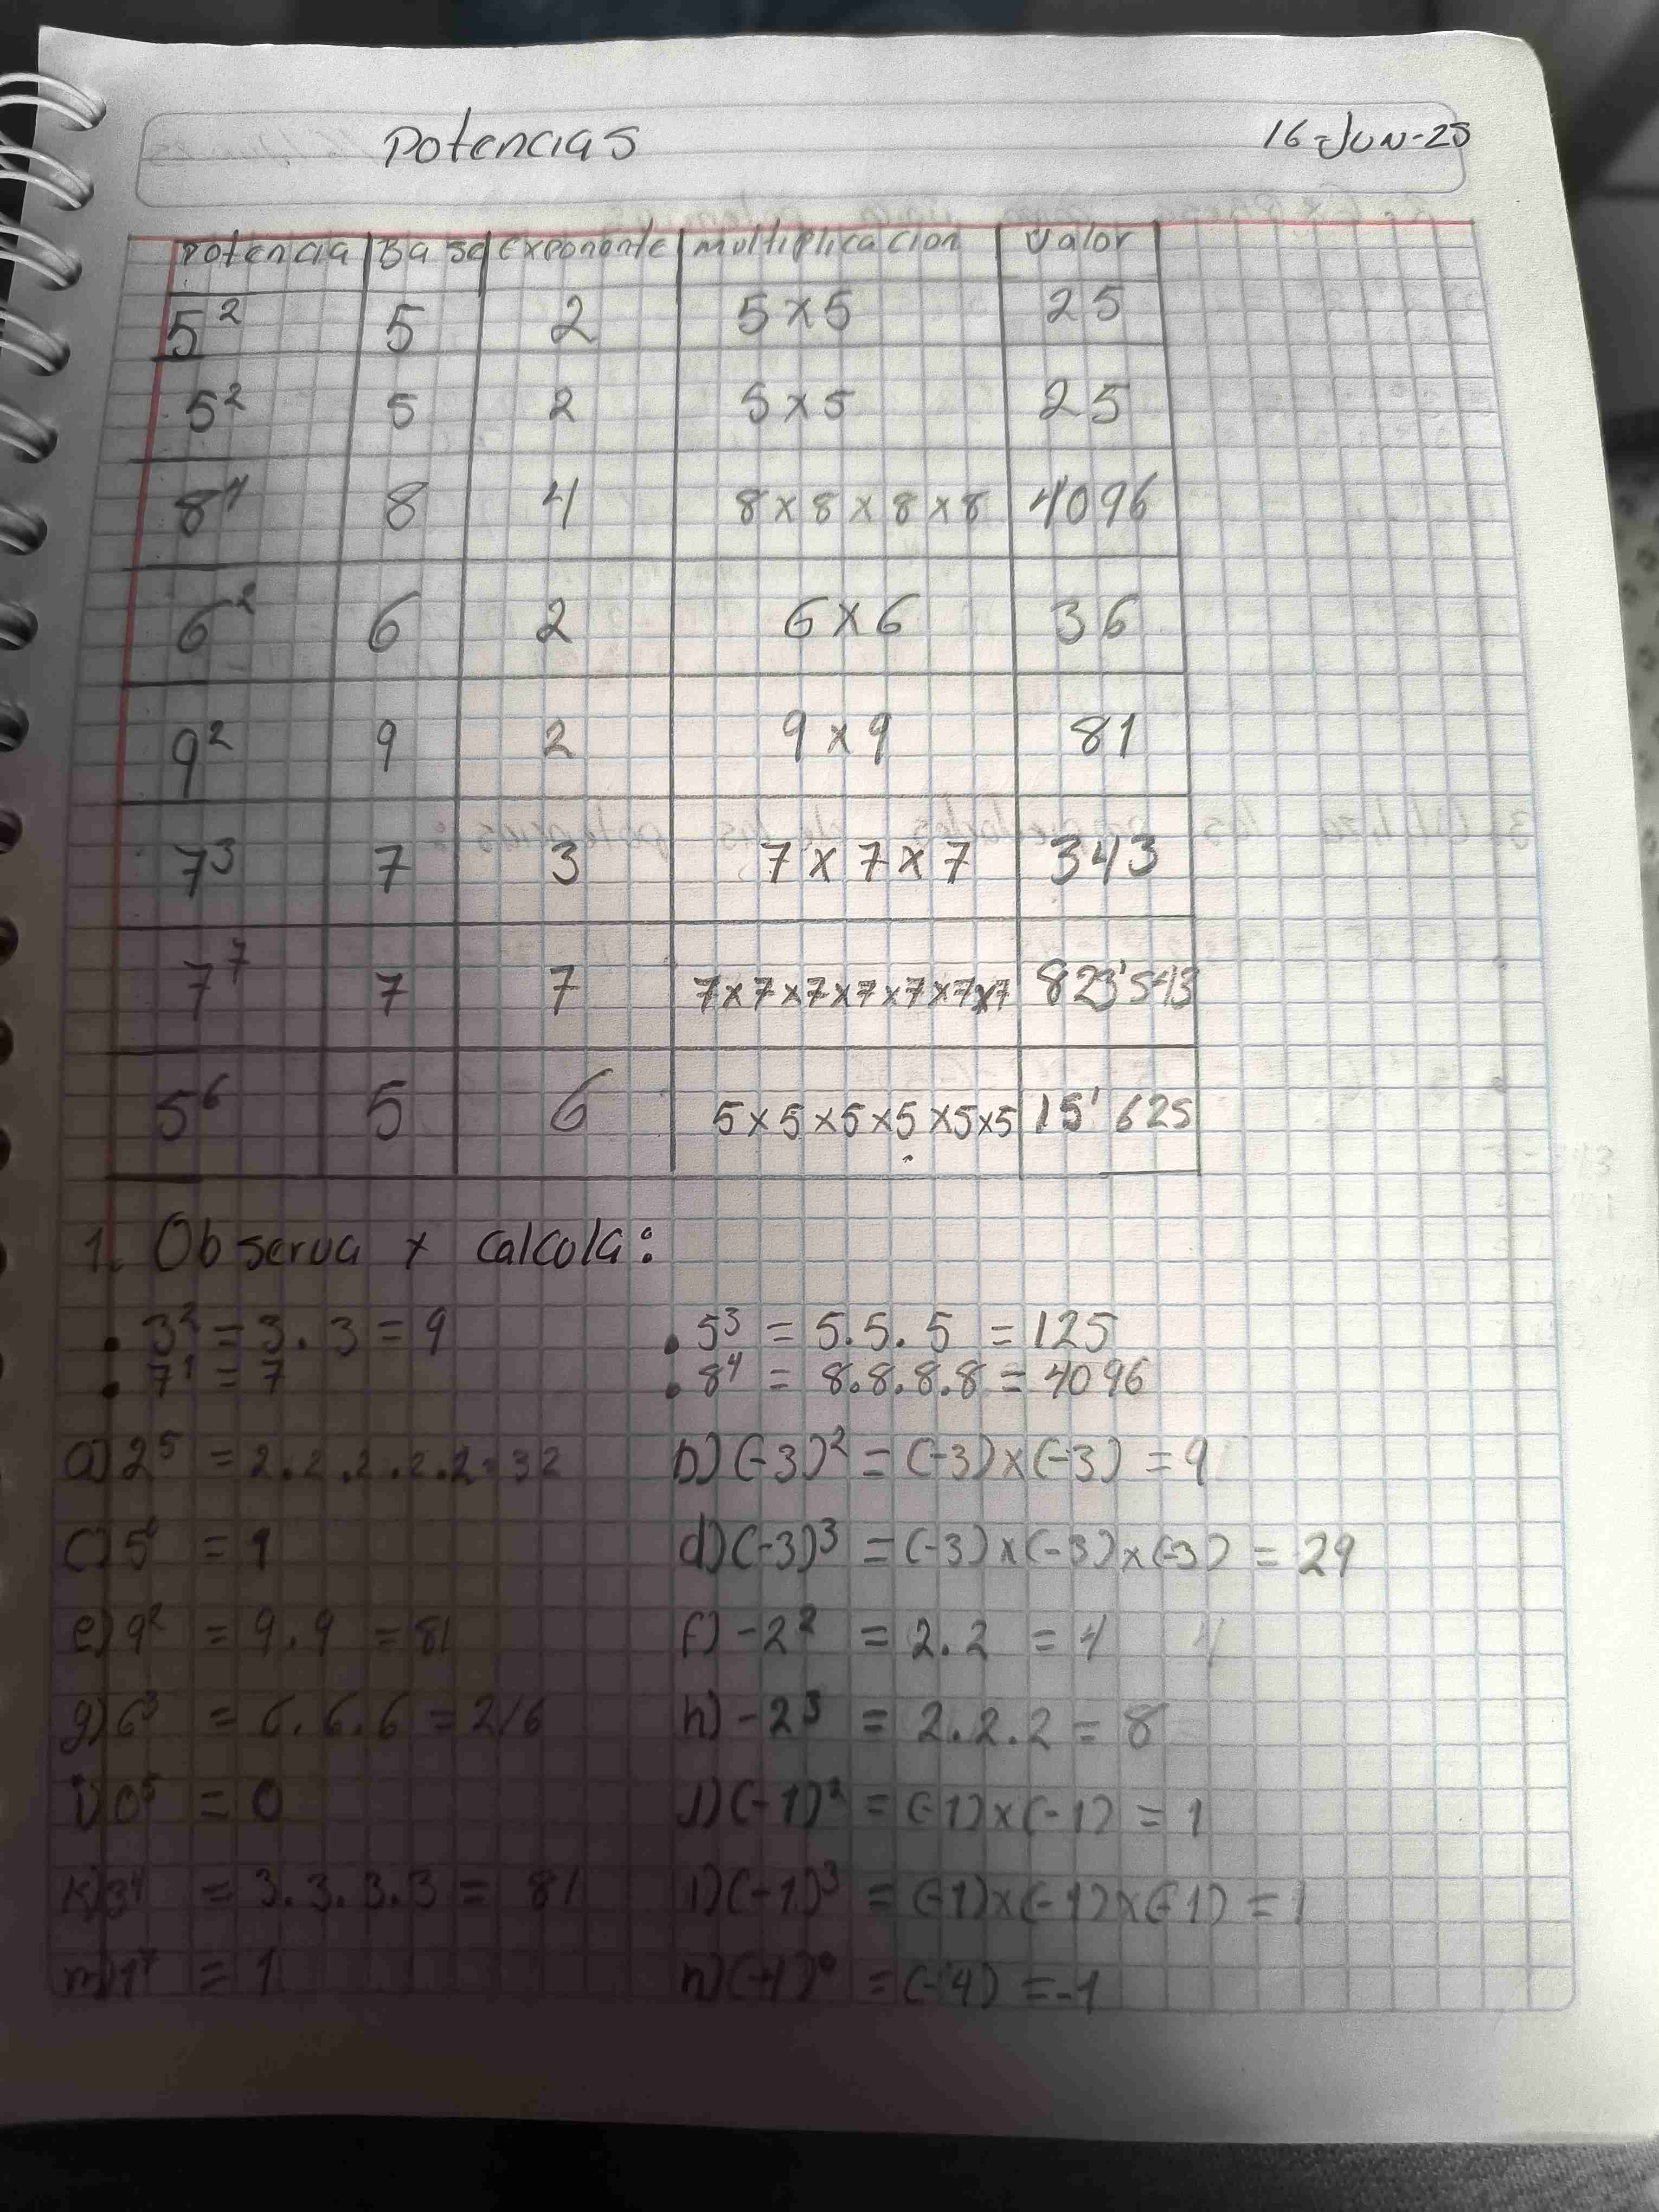 Potencias 16-JUN-25
Potencia Base exponente multiplicacion valor
5² 5 2 5 x 5 25
5² 5 2 5 x 5 25
8⁴ 8 4 8 x 8 x 8 x 8 4096
6² 6 2 6 x 6 36
9² 9 2 9 x 9 81
7³ 7 3 7 x 7 x 7 343
7⁷ 7 7 7x7x7x7x7x7x7 823'543
5⁶ 5 6 5x5x5x5x5x5 15'625
1. Observa y calcola:
• 3² = 3 . 3 = 9 • 5³ = 5.5.5 = 125
• 7¹ = 7 • 8⁴ = 8.8.8.8 = 4096
a) 2⁵ = 2.2.2.2.2 = 32 b) (-3)² = (-3)x(-3) = 9
c) 5⁰ = 1 d) (-3)³ = (-3)x(-3)x(-3) = 29
e) 9² = 9.9 = 81 f) -2² = 2.2 = 4
g) 6³ = 6.6.6 = 216 h) -2³ = 2.2.2 = 8
i) 0⁵ = 0 j) (-1)² = (-1)x(-1) = 1
k) 3⁴ = 3.3.3.3 = 81 l) (-1)³ = (-1)x(-1)x(-1) = 1
m) 1⁷ = 1 n) (-4)⁰ = (-4) = -1